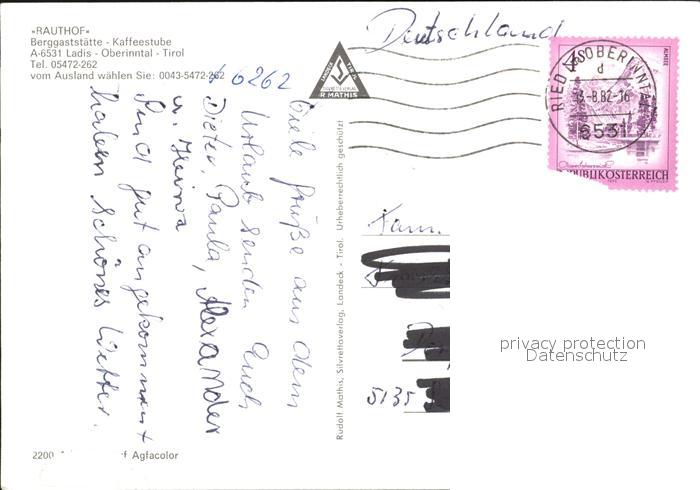 »RAUTHOF«
Berggaststätte - Kaffeestube
A-6531 Ladis - Oberinntal - Tirol
Tel. 05472-262
vom Ausland wählen Sie: 0043-5472-262
6262
Viele Grüße aus dem
Urlaub senden Euch
Dieter, Paula, Alexander
u.
Sind gut angekommen
haben schönes Wetter.
2200
f Agfacolor
R. MATHIS
Rudolf Mathis, Silvrettaverlag, Landeck - Tirol. Urheberrechtlich geschützt!
Deutschland
RIED IM OBERINNTAL
d
-8.82-16
6531
REPUBLIK ÖSTERREICH
Fam.
5135
privacy protection
Datenschutz